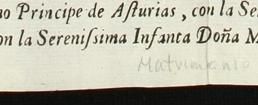 no Principe de Aſturias, con la Se
on la Sereniſsima Infanta Doña M
Matrimonio